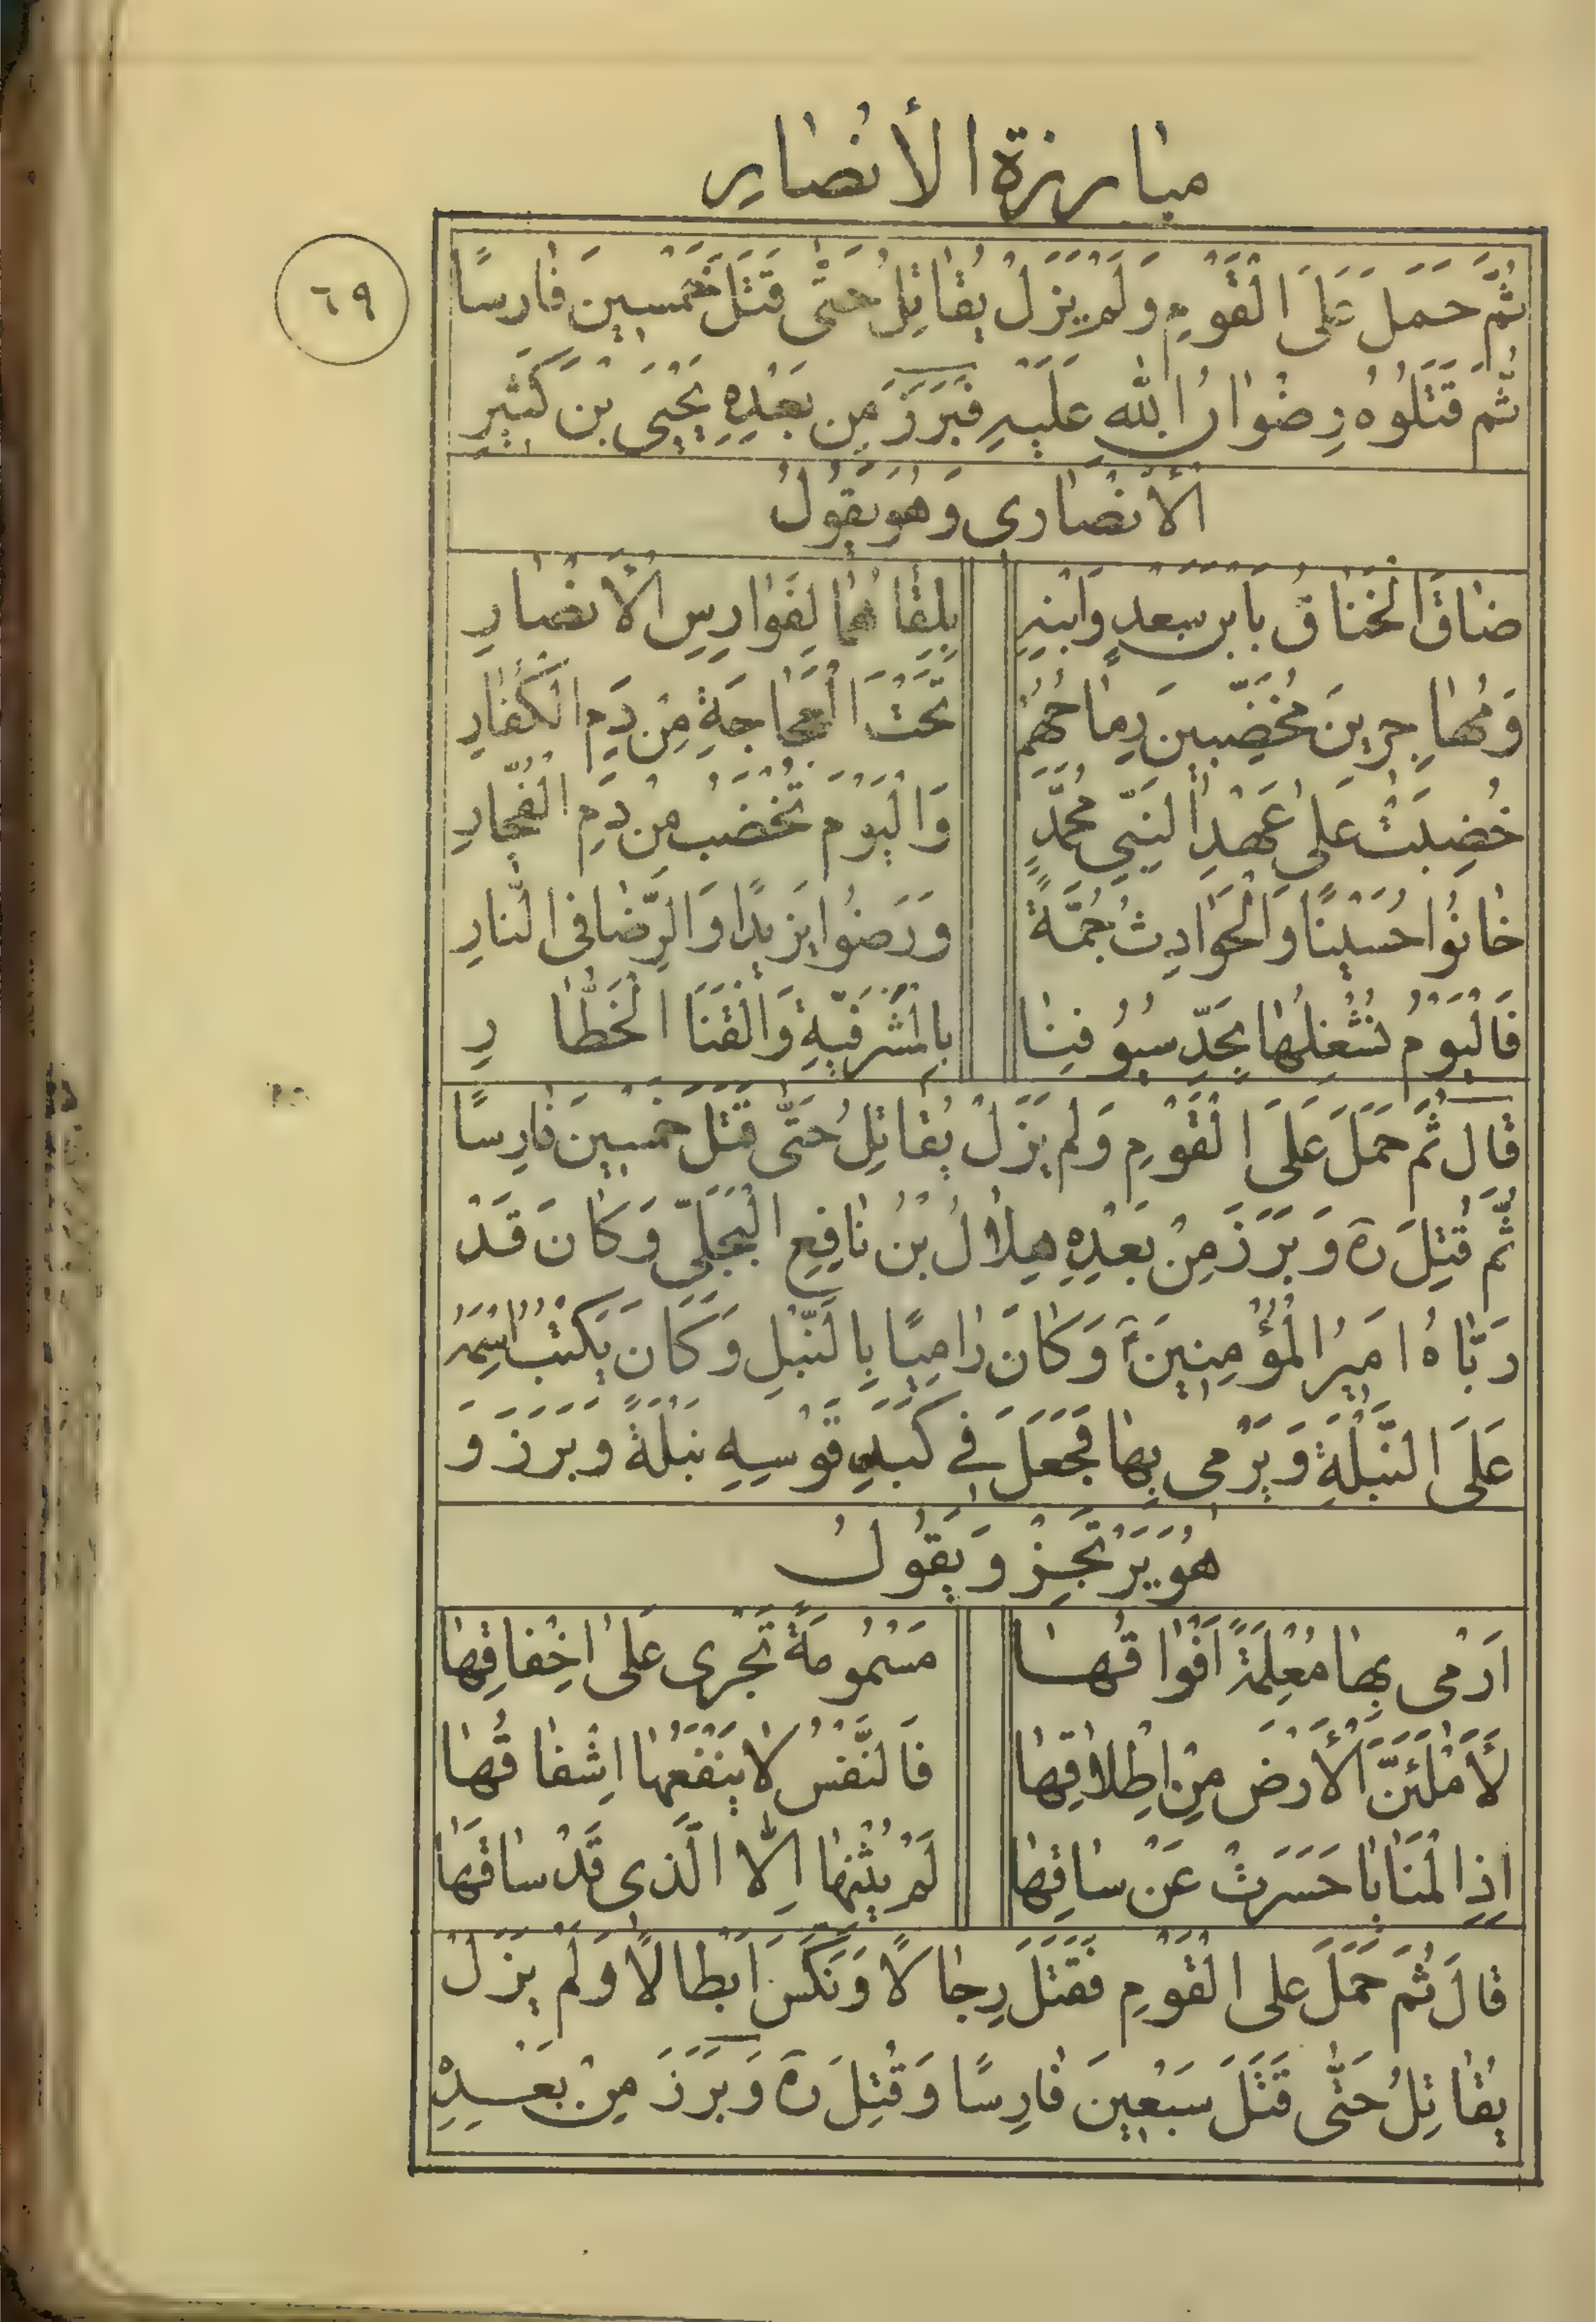 مبارزة الأنصار
٦٩
ثُمَّ حَمَلَ عَلَى الْقَوْمِ وَلَمْ يَزَلْ يُقاتِلُ حَتّٰى قَتَلَ خَمْسينَ فارِسًا
ثُمَّ قَتَلُوهُ رِضْوانُ اللهِ عَلَيْهِ فَبَرَزَ مِن بَعْدِهِ يَحْيَى بْن كَثيرِ
الْأَنْصاری وَهُوَ يَقُولُ
ضاقَ الْخَناقُ بِابْنِ سَعدٍ وَابْنِهِ بِلِقاهُما لِفَوارِسِ الْأَنْصارِ
وَمُهاجِرينَ مُخَضِّبينَ رِماحُهُمْ تَحْتَ الْعَجاجَةِ مِنْ دَمِ الْكُفّارِ
خُضِبَتْ عَلى عَهْدِ النَّبِيِّ مُحَمَّدٍ وَالْيَوْمَ تُخْضَبُ مِنْ دَمِ الْفُجّارِ
خانُوا حُسَيْنًا وَالْحَوادِثُ جُمَّةً وَرَضُوا يَزيدًا وَالرِّضا فی النّارِ
فَالْيَوْمُ نُشْغِلُها بِحَدِّ سُيُوفِنا بِالْمَشْرَفيَّةِ وَالْقَنَا الْخَطّارِ
قال ثُمَّ حَمَلَ عَلَى الْقَوْمِ وَلَم يَزَلْ يُقاتِلُ حَتّٰى قَتَلَ خَمْسينَ فارِسًا
ثُمَّ قُتِلَ رَهَ وَبَرَزَ مِنْ بَعْدِهِ هِلالُ بْنُ نافِعِ الْبَجَلِيّ وَكانَ قَدْ
رَبّاهُ اَميرُ الْمُؤْمِنينَ ع وَكانَ رامِيًا بِالنَّبْلِ وَكانَ يَكْتُبُ اسْمَهُ
عَلَى النَّبْلَةِ وَيَرْمی بِها فَجَعَلَ فی كَبَدِ قَوْسِهِ نَبْلَةً وَبَرَزَ وَ
هُوَ يَرْتَجِزُ وَيَقُولُ
اَرْمی بِها مُعْلِمَةً اَفْواقُها مَسْمُومَةً تَجْری عَلى اِخْفاقِها
لَأَمْلَئَنَّ الْأَرْضَ مِنْ اِطْلاقِها فَالنَّفْسُ لا يَنْفَعُها اِشْفاقُها
اِذِ الْمَنايا حَسَرَتْ عَنْ ساقِها لَمْ يُثْنِها اِلّا الَّذی قَدْ ساقَها
قالَ ثُمَّ حَمَلَ عَلى الْقَوْمِ فَقَتَلَ رِجالًا وَنَكَسَ اَبْطالًا وَلَمْ يَزَلْ
يُقاتِلُ حَتّٰى قَتَلَ سَبْعينَ فارِسًا وَقُتِلَ رَهَ وَبَرَزَ مِنْ بَعْدِهِ